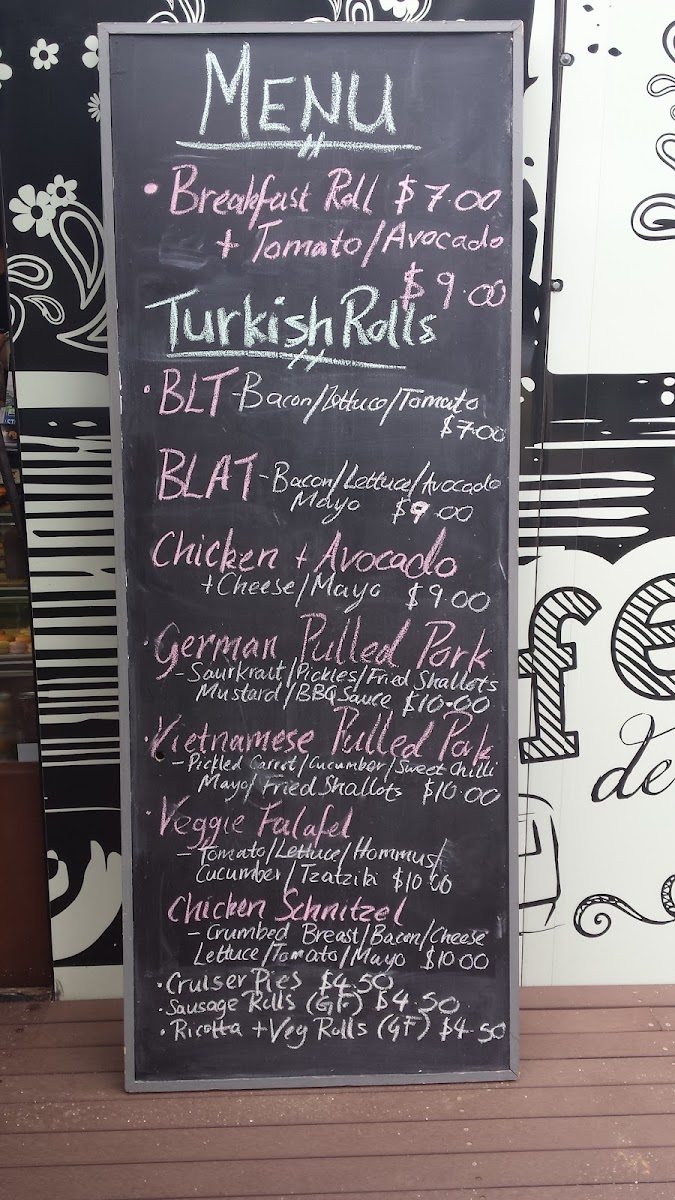 MENU
• Breakfast Roll $7.00
+ Tomato/Avocado
$9.00
Turkish Rolls
• BLT - Bacon/Lettuce/Tomato
$7.00
BLAT - Bacon/Lettuce/Avocado
Mayo $9.00
Chicken + Avocado
+ Cheese/Mayo $9.00
• German Pulled Pork
- Saurkraut/Pickles/Fried Shallots
Mustard/BBQ Sauce $10.00
• Vietnamese Pulled Pork
- Pickled Carrot/Cucumber/Sweet Chilli
Mayo/Fried Shallots $10.00
• Veggie Falafel
- Tomato/Lettuce/Hommus/
Cucumber/Tzatziki $10.00
Chicken Schnitzel
- Crumbed Breast/Bacon/Cheese
Lettuce/Tomato/Mayo $10.00
• Cruiser Pies $4.50
• Sausage Rolls (GF) $4.50
• Ricotta + Veg Rolls (GF) $4.50
fe
de